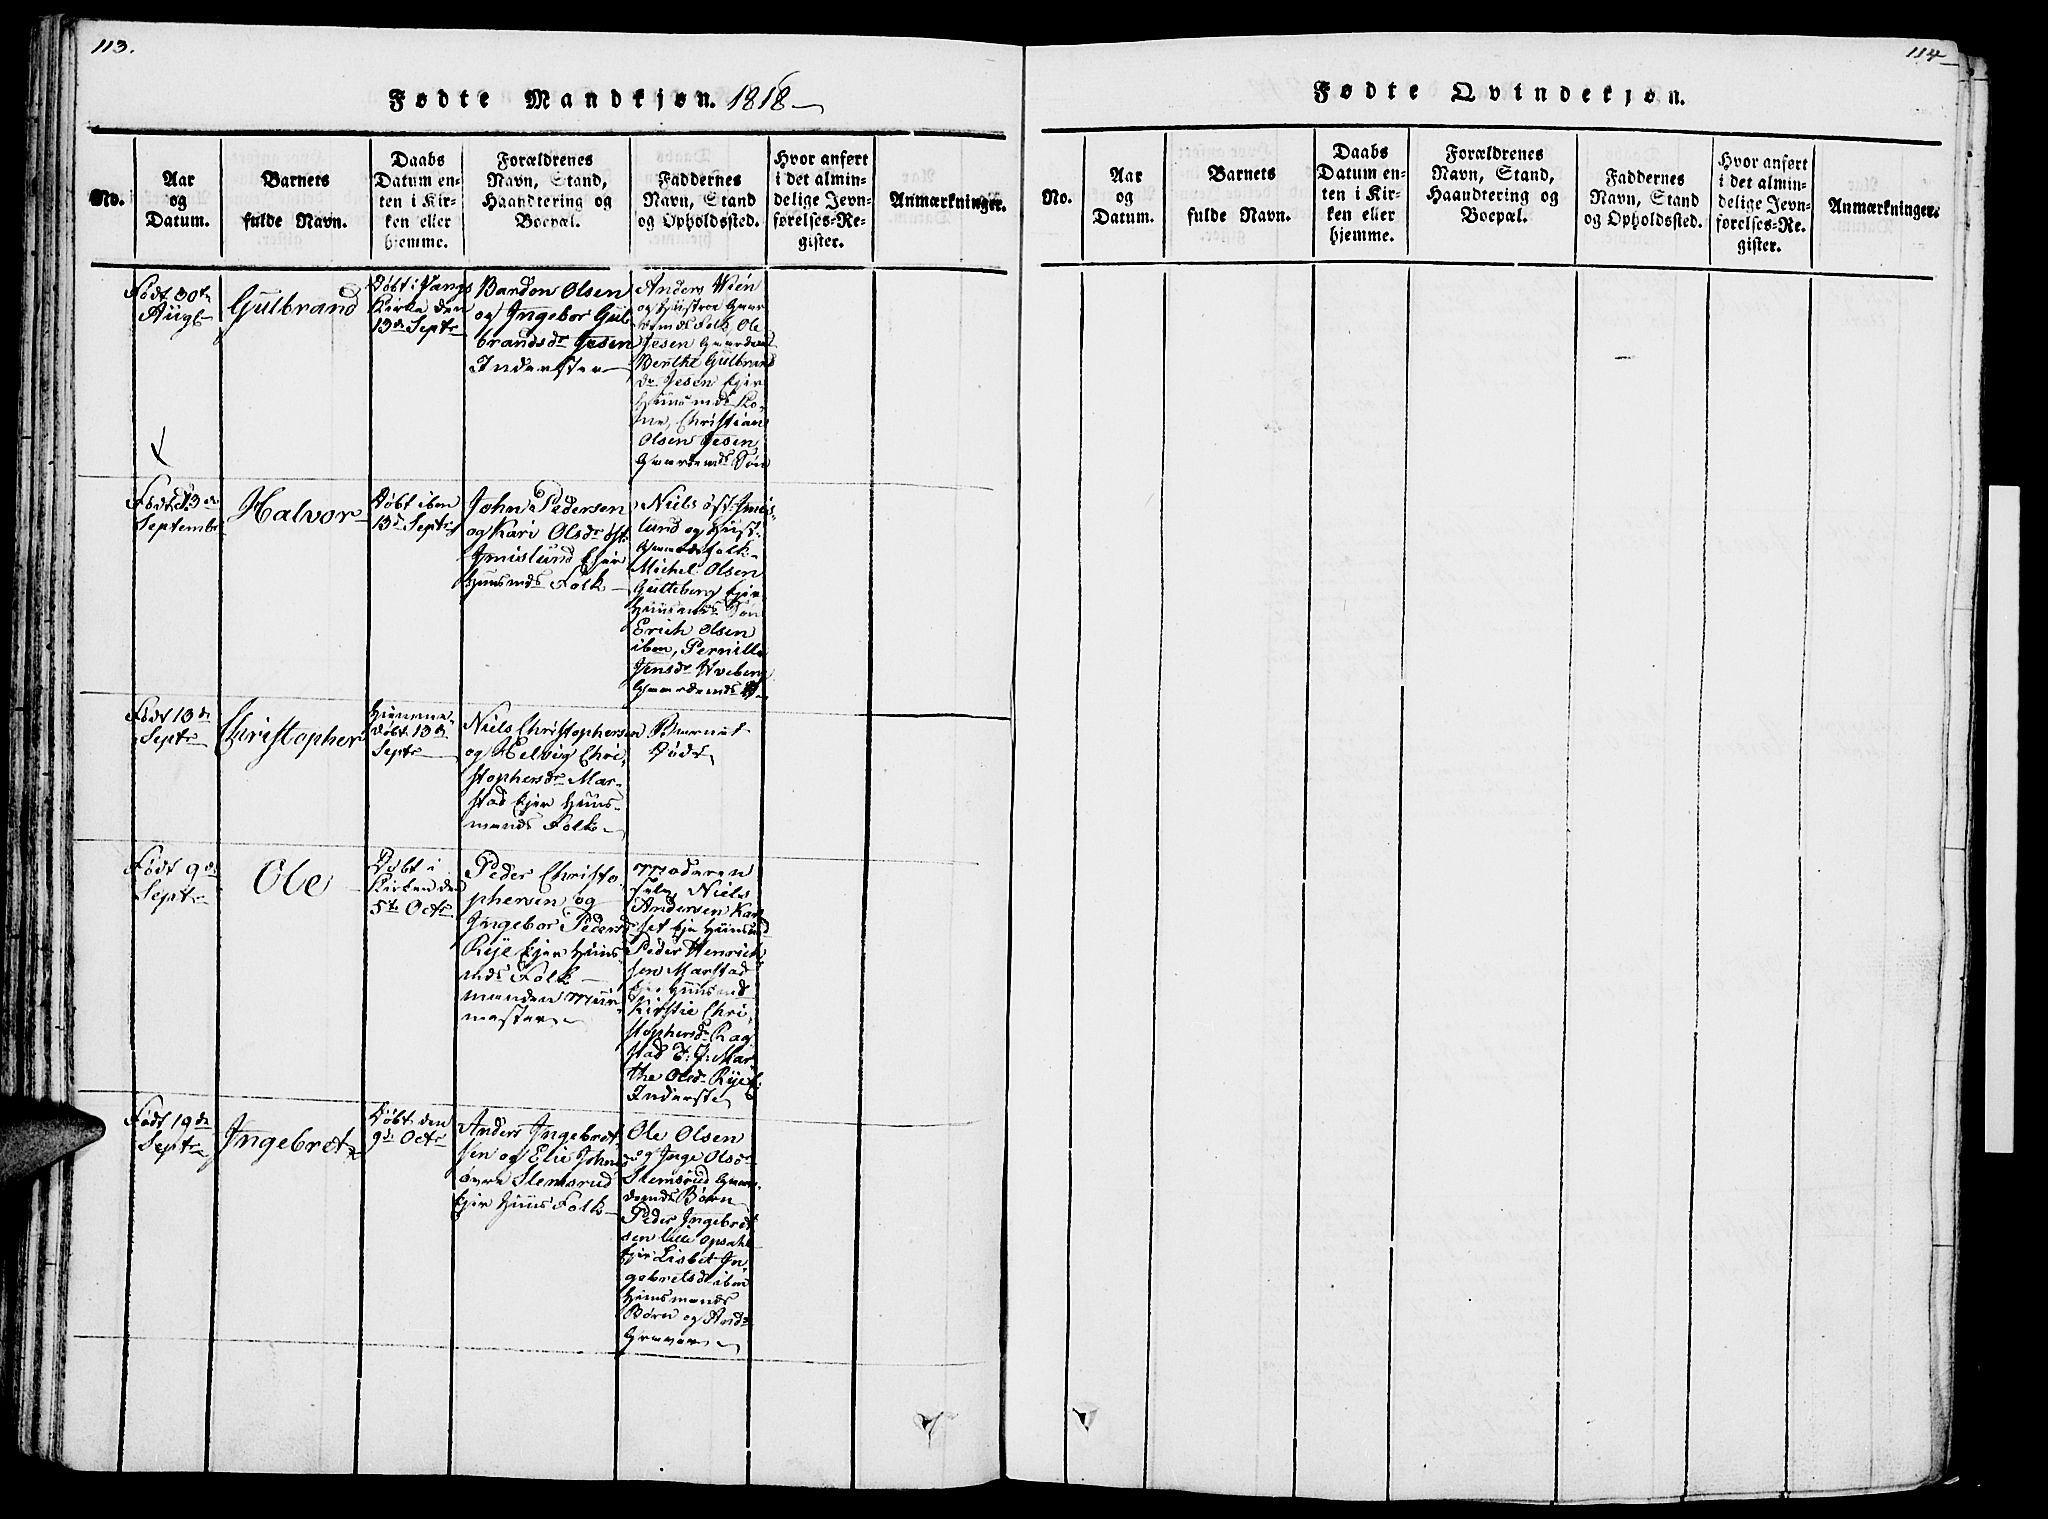 113.
Fødte Mandkjøn. 1818
No.
Aar
og
Datum.
Barnets
fulde Navn.
Daabs
Datum en-
ten i Kir-
ken eller
hjemme.
Forældrenes
Navn, Stand,
Haandtering og
Boepæl.
Faddernes
Navn, Stand
og Opholdssted.
Hvor anført
i det almin-
delige Jevn-
førelses-Re-
gister.
Anmærkninger.
Født 30te
Augs
Gulbrand
Døbt i Vangs
Kirke den
13de Septr
Bardon Olsen
og Ingebor Gul
brandsdr Jesen
Inderster
Anders Wien
og Hustroe Gaar
demds Folk, Ole
Jesen Gaardmd
Berthe Gulbrand
dr Jesen Ejer
Huusmds Ko-
ne, Christian
Olsen Jesen
Gaardmds Søn
Født 13de
Septembr
Halvor
Døbt ibm
13de Septr
John Pedersen
og Kari Olsdr øst
Imislund Ejer
Huusmds Folk
Niels øst Imis-
lund og Hust
Gaardsfolk
Michel Olsen
Gutteberg Ejer
Huusmds Søn
Erich Olsen
ibm, Pernille
Jensdr Hveberg
Gaardemds
Født 13de
Septr
Christopher
Hiemme-
døbt 13de
Septr
Niels Christophersen
og Helvig Chri-
stophersdr Mar-
stad Ejer Huus-
mands Folk
Barnet
Død
Født 9de
Septr
Ole
Døbt i
Kirken den
5te Octr
Peder Christo-
phersen og
Ingebor Peders
Rye Ejer Huus-
mds Folk
manden Muur-
mester
Moderen
selv, Niels
Andersen Kar
set Eje Huusmd
Peder Henrich
sen Marstad
Eje Huusmd
Kirstie Chri-
stophersdr Rog
stad T: J: Mar
the Olsdr Rye E:
Inderste
Født 19de
Septr
Ingebret
Døbt den
9de Octr
Anders Ingebret
sen og Elie Johns
øvre Slemsrud
Ejer Huus Folk
Ole Olsen
og Inge Olsdr
Slemsrud Gaar-
demds Børn
Peder Ingebret
sen lille Opsahl
Ejer Lisbet In-
gebretsdr ibm
Huusmands
Børn og And
Graver
114
Fødte Qvindekjøn.
No.
Aar
og
Datum.
Barnets
fulde Navn.
Daabs
Datum en-
ten i Kir-
ken eller
hjemme.
Forældrenes
Navn, Stand,
Haandtering og
Boepæl.
Faddernes
Navn, Stand
og Opholdssted.
Hvor anført
i det almin-
delige Jevn-
førelses-Re-
gister.
Anmærkninger.